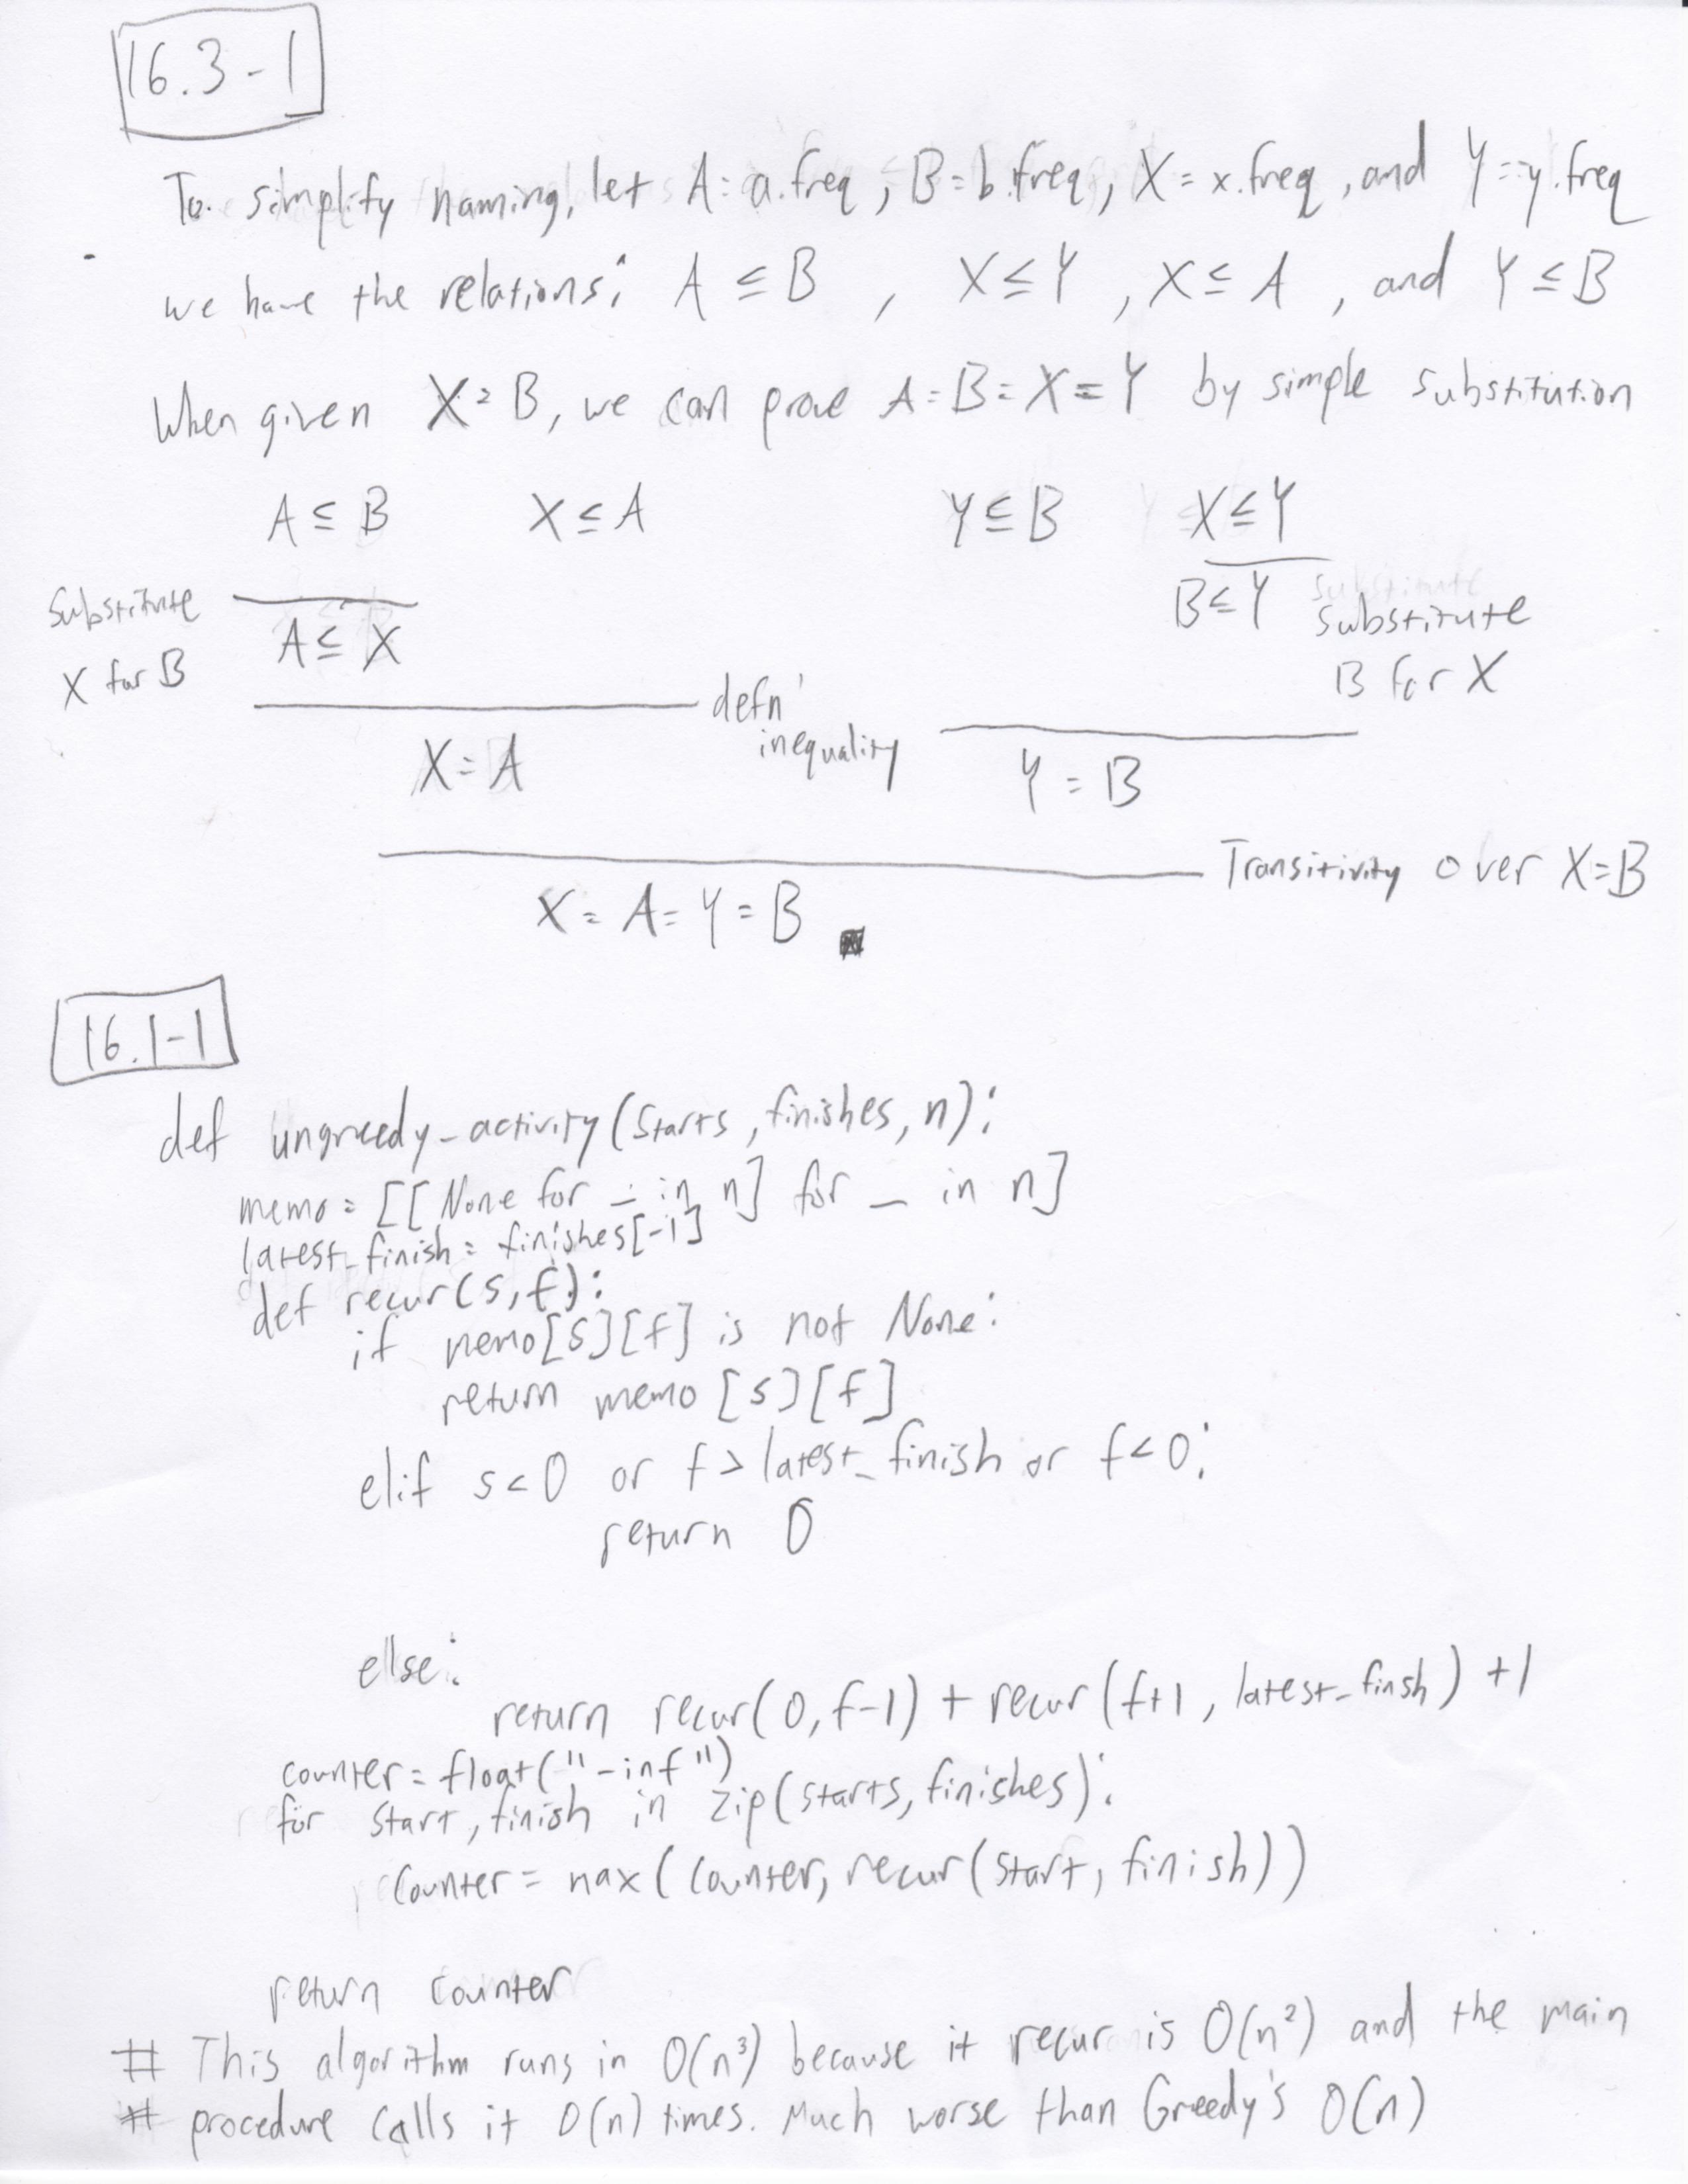 16.3-1
To simplify naming, let A=a.freq, B=b.freq, X=x.freq, and Y=y.freq
we have the relations: A ≤ B , X ≤ Y , X ≤ A , and Y ≤ B
When given X=B, we can prove A=B=X=Y by simple substitution
A ≤ B X ≤ A Y ≤ B X ≤ Y
Substitute
X for B
A ≤ X
B ≤ Y
substitute
B for X
defn'
inequality
X=A
Y=B
Transitivity over X=B
X=A=Y=B
16.1-1
def ungreedy_activity(starts, finishes, n):
memo = [[None for _ in n] for _ in n]
latest_finish = finishes[-1]
def recur(s, f):
if memo[s][f] is not None:
return memo[s][f]
elif s<0 or f>latest_finish or f<0:
return 0
else:
return recur(0, f-1) + recur(f+1, latest_finsh) +1
counter = float("-inf")
for start, finish in zip(starts, finishes):
counter = max(counter, recur(start, finish))
return counter
# This algorithm runs in O(n³) because it recur is O(n²) and the main
# procedure calls it O(n) times. Much worse than Greedy's O(n)